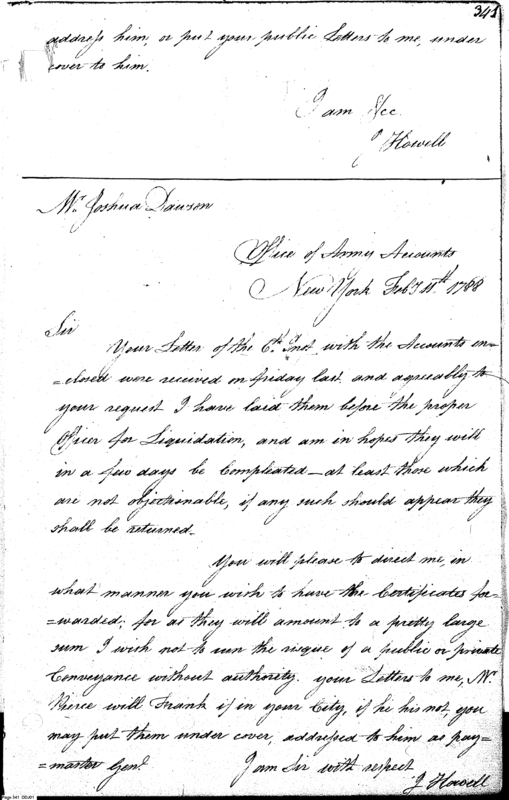 341
address him, or put your public Letters to me, under
cover to him.
I am &cc
J Howell
Mr. Joshua Dawson
Office of Army Accounts
New York Feby 11th 1788
Sir
Your Letter of the 6th. Inst. with the Accounts en=
=closed were received on friday last, and agreeably to
your request I have laid them before the proper
Officer for Liquidation, and am in hopes they will
in a few days be Compleated — at least those which
are not objectionable, if any such should appear they
shall be returned.
You will please to direct me, in
what manner you wish to have the Certificates for=
=warded; for as they will amount to a pretty large
sum I wish not to run the risque of a public or private
Conveyance without authority. your Letters to me, Mr.
Pierce will Frank if in your City, if he his not, you
may put them under cover, addressed to him as pay=
=master Genl.
I am Sir with respect
J Howell
Page 341